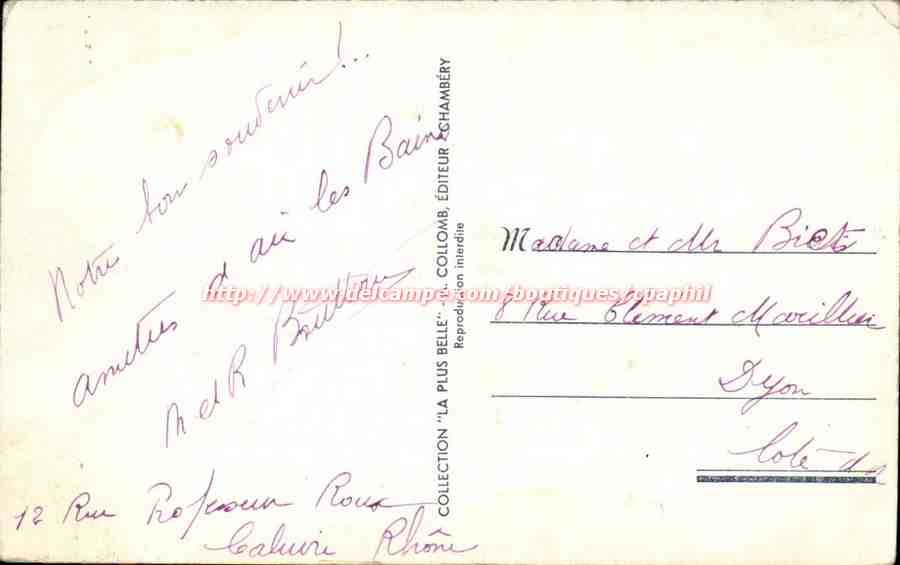 Notre bon souvenir !..
amitiés d aix les Bains
M et R
12 Rue Professeur Roux
Caluire Rhône
COLLECTION "LA PLUS BELLE" - L. COLLOMB, ÉDITEUR - CHAMBÉRY
Reproduction interdite
http://www.delcampe.com/boutiques/cpaphil
Madame et Mr
8 Rue Clement
Dyon
Cote d